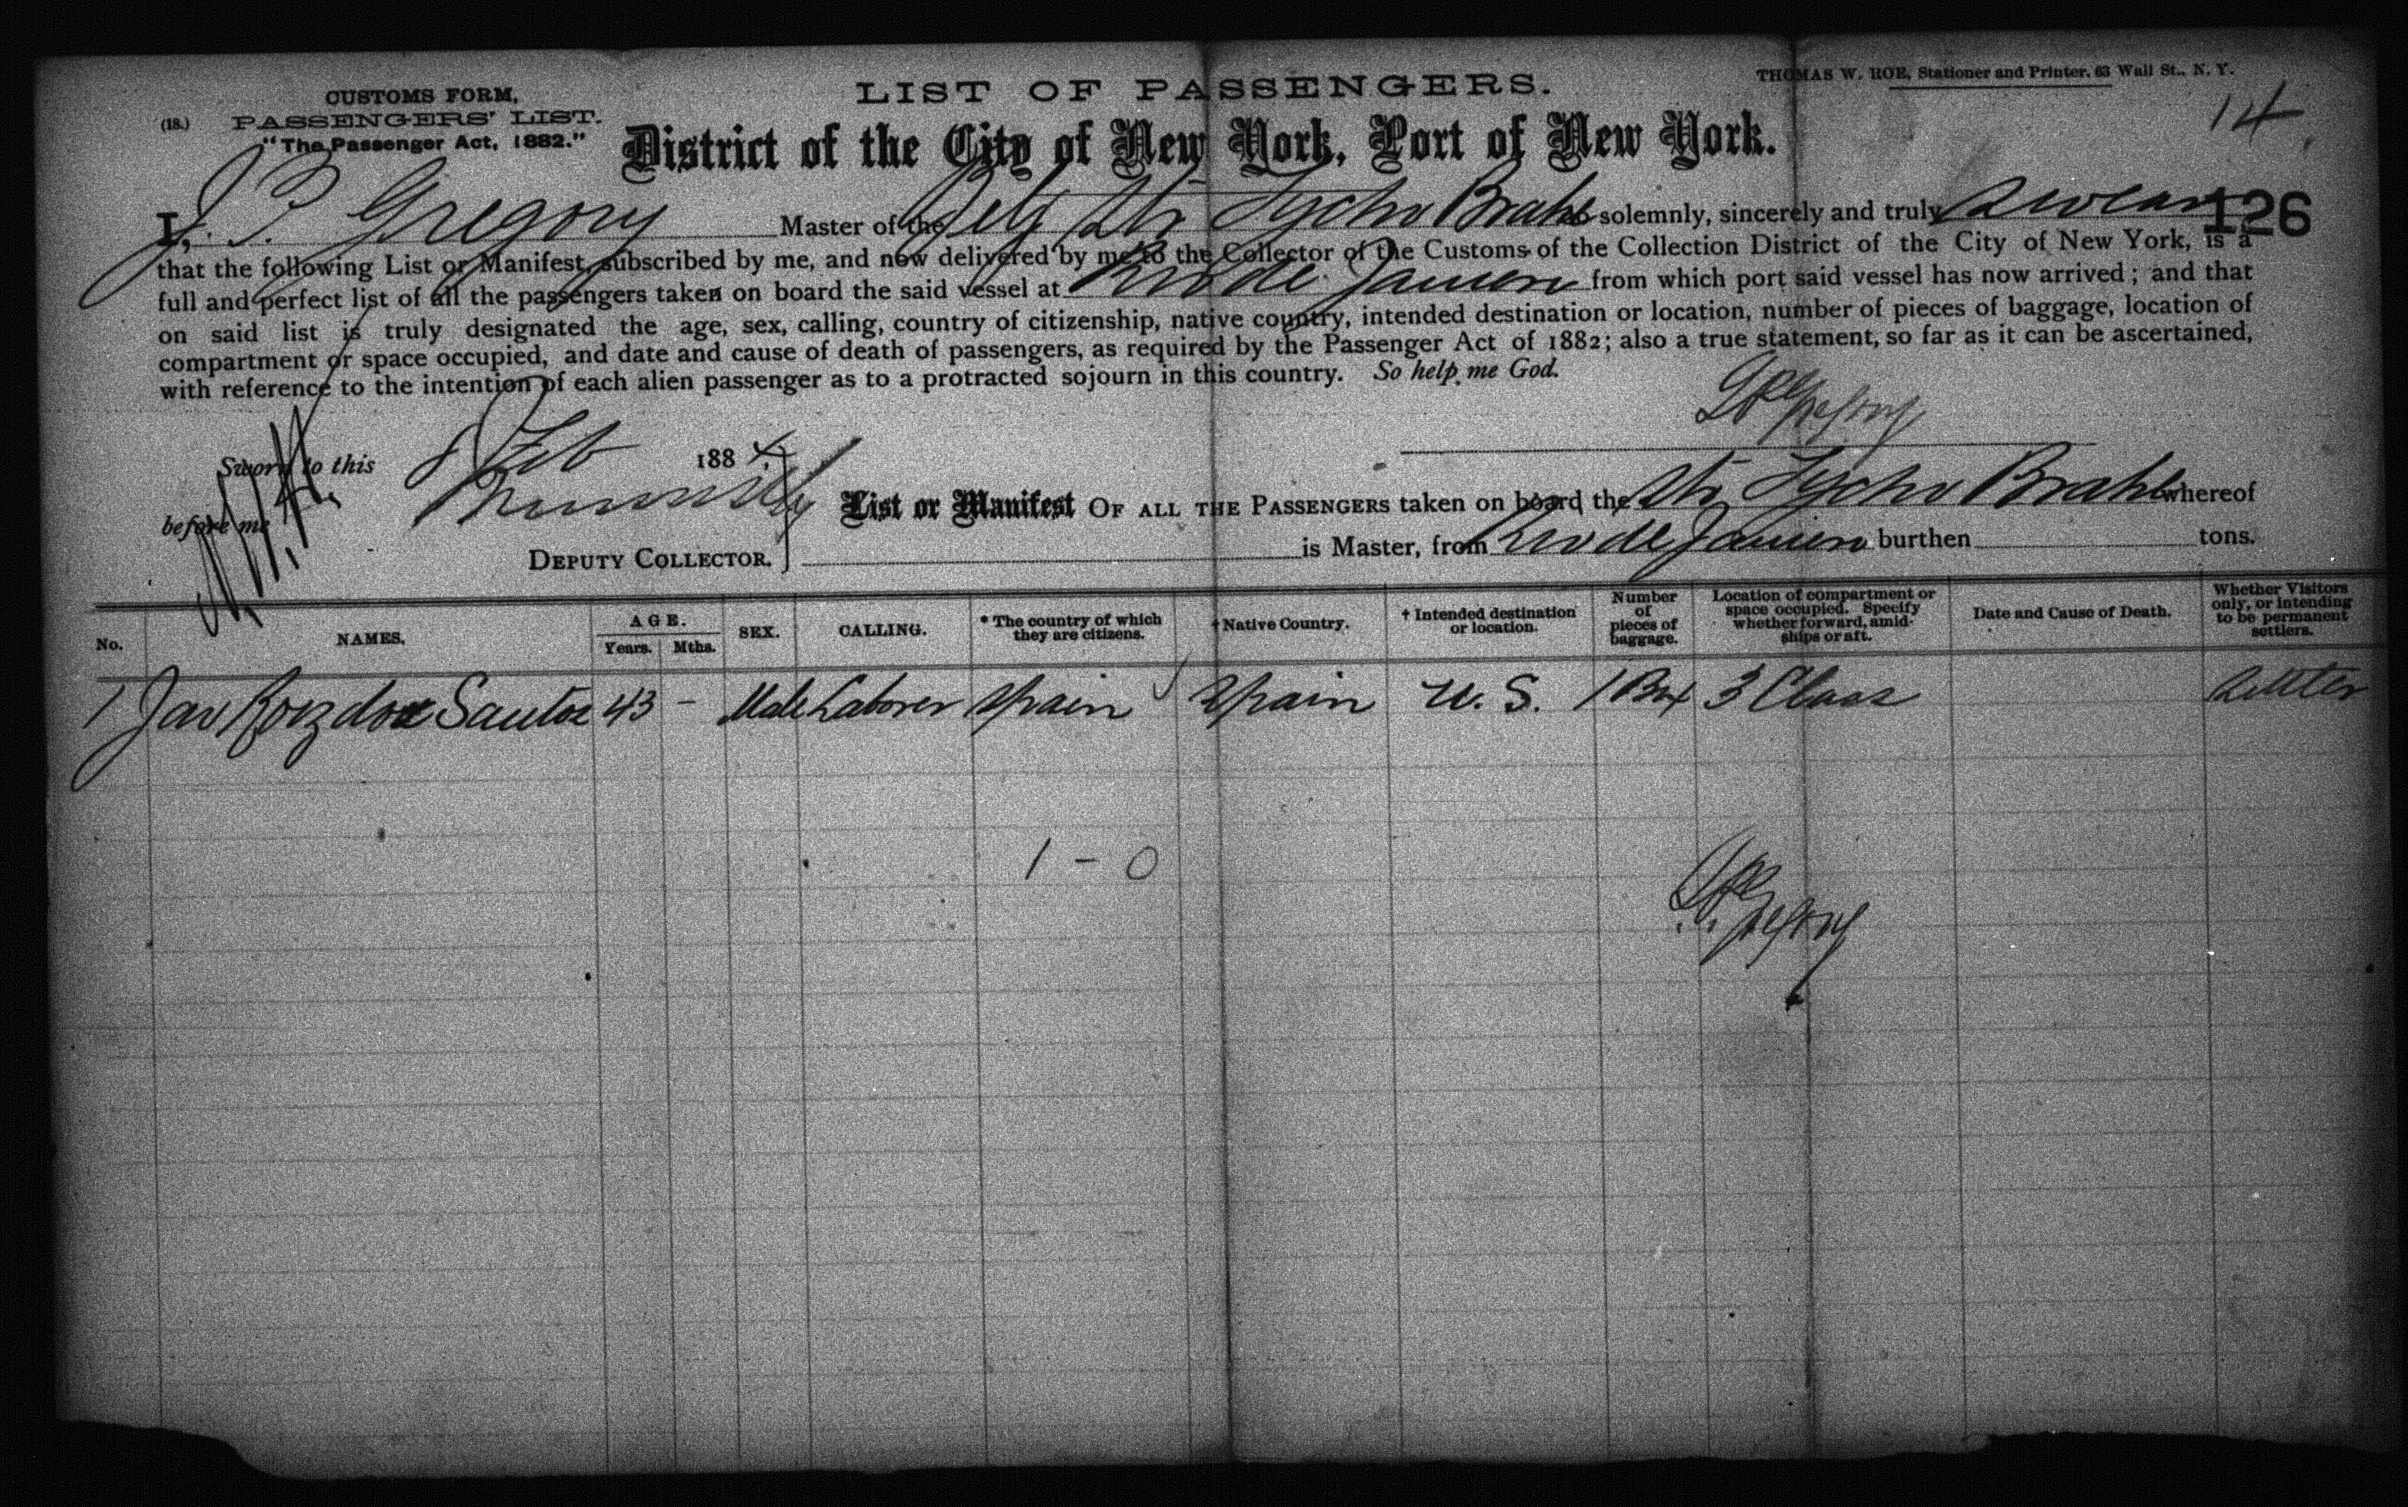 CUSTOMS FORM,
(18.) PASSENGERS' LIST.
"The Passenger Act, 1882."
LIST OF PASSENGERS.
THOMAS W. ROE, Stationer and Printer, 63 Wall St., N. Y.
14
District of the City of New York, Port of New York.
126
I, J. P. Gregory Master of the Belg Str Tycho Brahe do solemnly, sincerely and truly swear
that the following List or Manifest, subscribed by me, and now delivered by me to the Collector of the Customs of the Collection District of the City of New York, is a
full and perfect list of all the passengers taken on board the said vessel at Rio de Janeiro from which port said vessel has now arrived; and that
on said list is truly designated the age, sex, calling, country of citizenship, native country, intended destination or location, number of pieces of baggage, location of
compartment or space occupied, and date and cause of death of passengers, as required by the Passenger Act of 1882; also a true statement, so far as it can be ascertained,
with reference to the intention of each alien passenger as to a protracted sojourn in this country. So help me God.
J P Gregory
Sworn to this 8 Feb 1884
before me
DEPUTY COLLECTOR.
List or Manifest OF ALL THE PASSENGERS taken on board the Str Tycho Brahe whereof
is Master, from Rio de Janeiro burthen tons.
No. NAMES. AGE. Years. Mths. SEX. CALLING. * The country of which they are citizens. † Native Country. † Intended destination or location. Number of pieces of baggage. Location of compartment or space occupied. Specify whether forward, amidships or aft. Date and Cause of Death. Whether Visitors only, or intending to be permanent settlers.
1 dos Santos 43 - Male Laborer Spain Spain U. S. 1 Box 3 Class Settler
1 - 0
J P Gregory